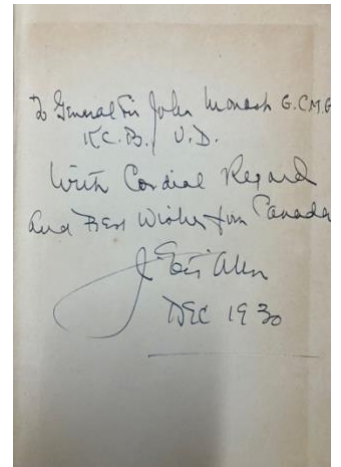 To General Sir John Monash G.C.M.G
K.C.B. V.D.
With Cordial Regard
and Best Wishes from Canada
J. Allen
DEC 1930